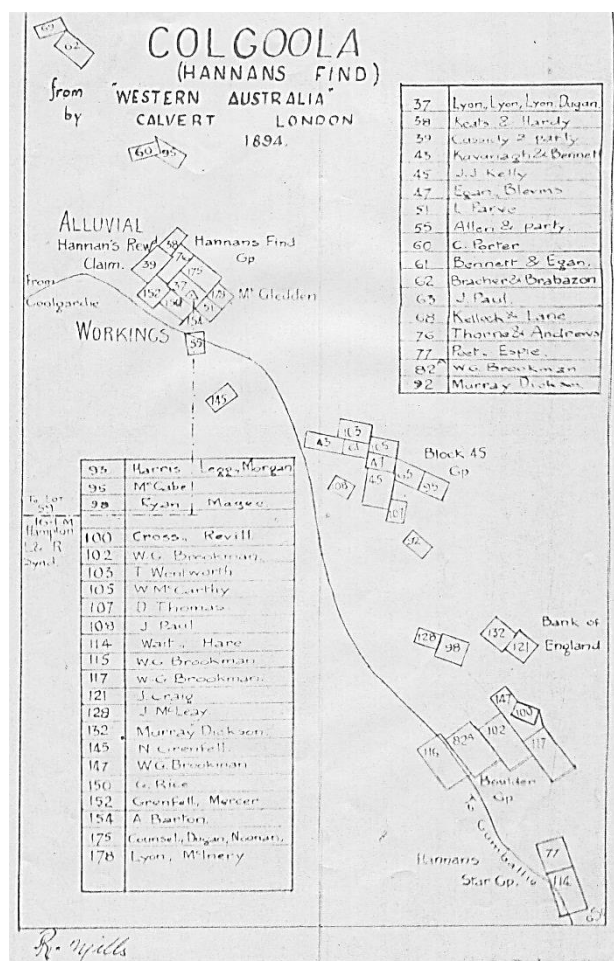 69
62
COLGOOLA
(HANNANS FIND)
from "WESTERN AUSTRALIA"
by CALVERT LONDON
1894.
60 95
37 Lyon, Lyon, Lyon, Dugan
38 Keats & Hardy
39 Cassidy & party
43 Kavanagh & Bennett
45 J.J Kelly
47 Egan, Blevins
51 L Parve
55 Allen & party
60 C. Porter
61 Bennett & Egan.
62 Bracher & Brabazon
63 J. Paul.
68 Kellock & Lane
76 Thorne & Andrews
77 Post, Espie.
82^ W.G. Brookman
92 Murray Dickson
ALLUVIAL
Hannan's Rewd
Claim.
Hannans Find
Gp
38
76
39
175
37
152
150
51
178
154
McGledden
From
Coolgardie
WORKINGS
55
145
103
43
61
105
47
45
63
95
108
107
92
Block 45
Gp
93 Harris Legg, Morgan
95 McCabel
98 Ryan Magee
To Lot
59
16-1 M
Hampton
L & R
Synd.
100 Cross, Revill
102 W.G. Brookman
103 T Wentworth
105 W McCarthy
107 D. Thomas
108 J Paul
114 Wait, Hare
115 W.G Brookman
117 W.G Brookman
121 J. Craig
128 J. McLeay
132 Murray Dickson
145 N Grenfell
147 W.G Brookman
150 G. Rice
152 Grenfell, Mercer
154 A Barton.
175 Counsel, Dugan, Noonan,
178 Lyon, McInery
128
98
132
121
Bank of
England
147
100
102
82A
116
117
Boulder
Gp
To Gumballie
Hannans
Star Gp.
77
114
R. Mills